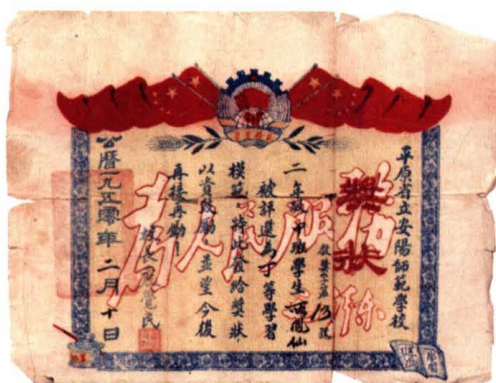 平原省立安陽師範學校
獎狀
字第13號
二年級甲班學生鳳仙
被評選為等學習
模範特此發給獎狀
以資鼓勵並望今後
再接再勵
校長民
公曆一九五零年二月十日
為人民服務